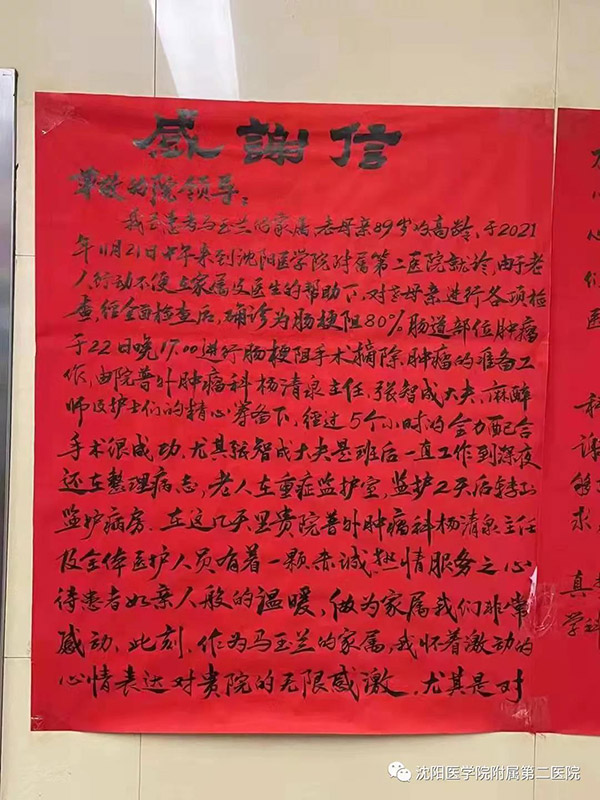 感謝信
尊敬的院领导:
我是患者马玉兰的家属,老母亲89岁高龄,于2021
年11月21日中午来到沈阳医学院附属第二医院就诊,由于老
人行动不便,在家属及医生的帮助下,对老母亲进行各项检
查,经全面检查后,确诊为肠梗阻80%肠道部位肿瘤
于22日晚17.00进行肠梗阻手术摘除.肿瘤的准备工
作,由院普外肿瘤科杨清泉主任,张智成大夫、麻醉
师及护士们的精心筹备下,经过5个小时的全力配合
手术很成功.尤其张智成大夫是班后一直工作到深夜
还在整理病志,老人在重症监护室,监护2天后转出
监护病房.在这几天里贵院普外肿瘤科杨清泉主任
及全体医护人员有着一颗赤诚.热情服务之心
待患者如亲人般的温暖,做为家属我们非常
感动.此刻.作为马玉兰的家属,我怀着激动的
心情表达对贵院的无限感激.尤其是对
们
谢
够
求
真
学科
沈阳医学院附属第二医院